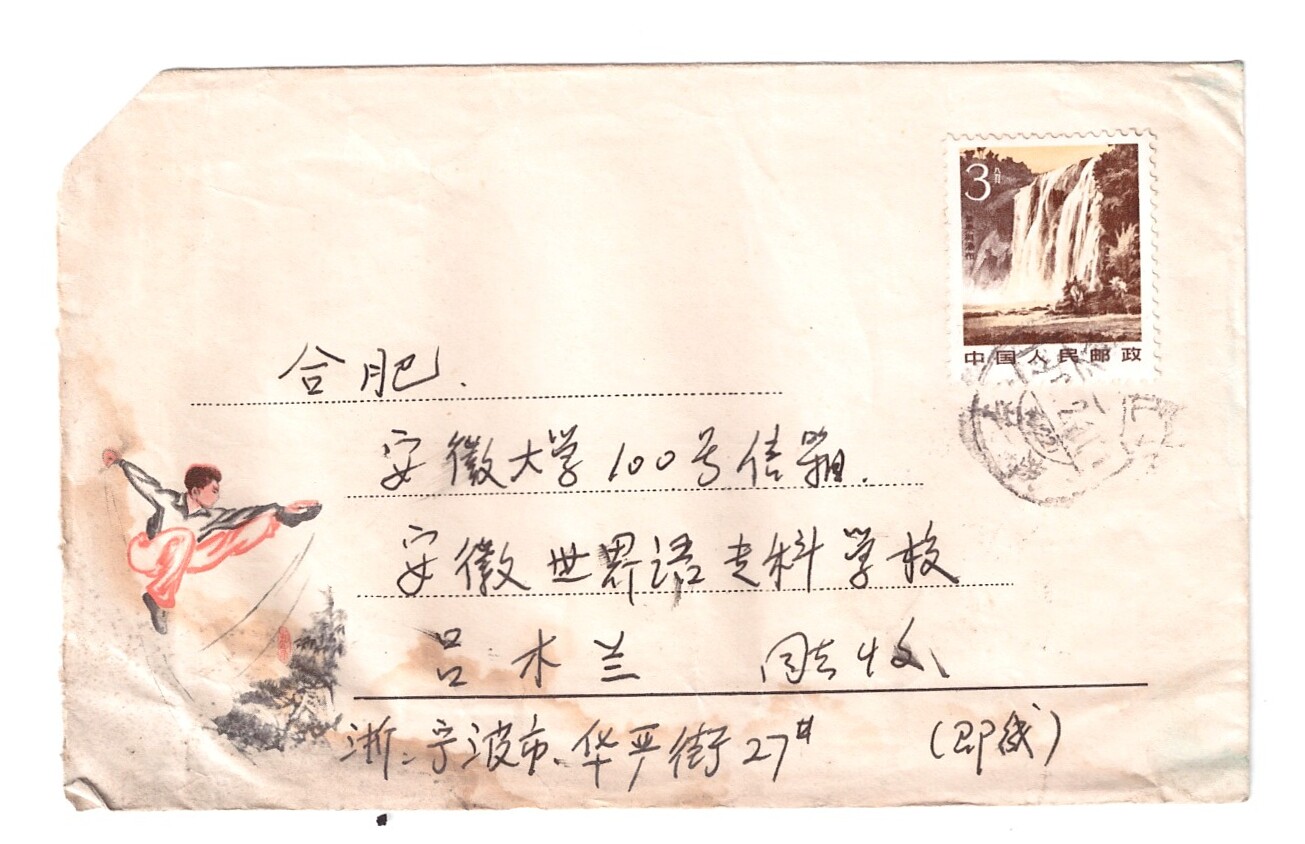 3分
中国人民邮政
合肥.
安徽大学100号信箱.
安徽世界语专科学校
吕木兰 同志收
浙.宁波市.华严街27#